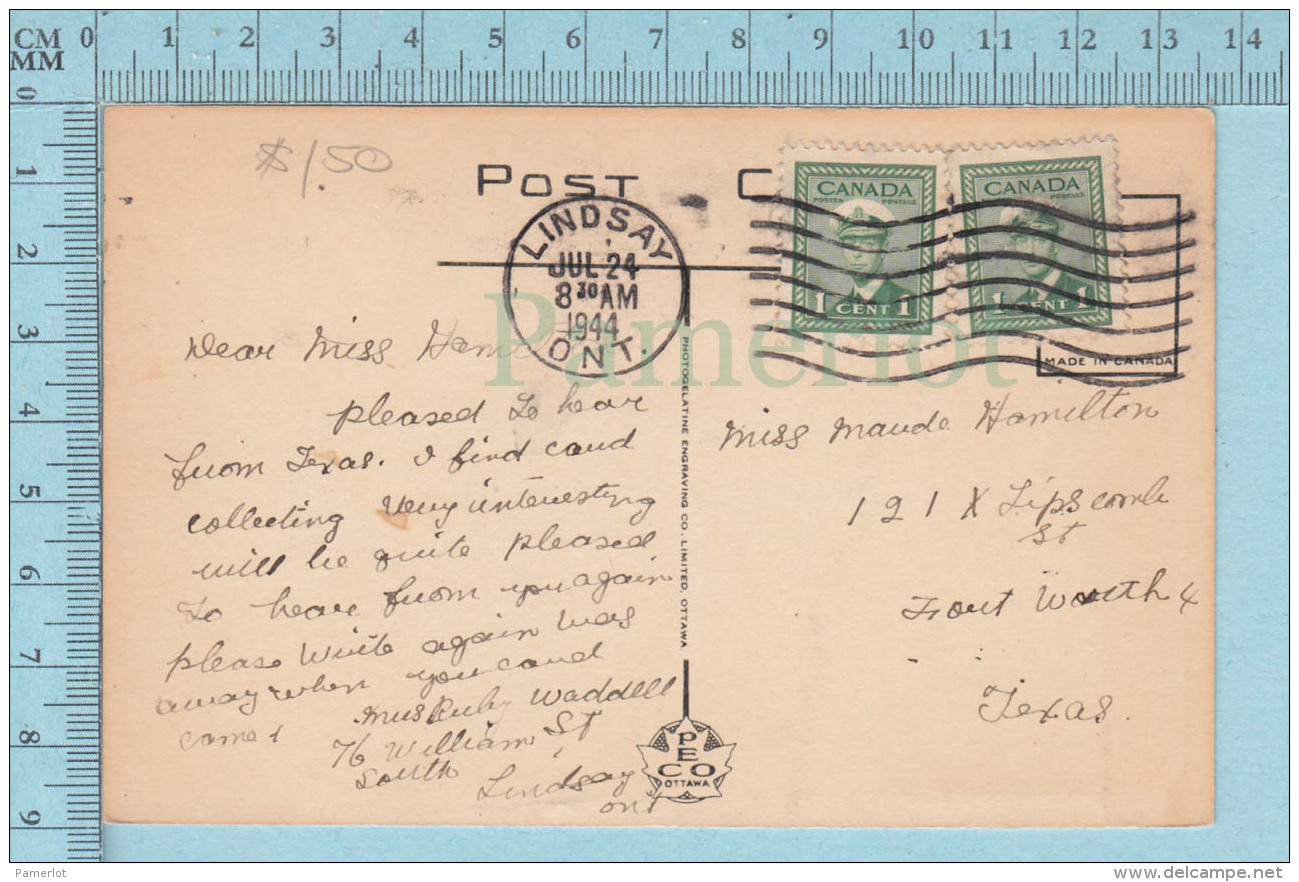 CM 0 1 2 3 4 5 6 7 8 9 10 11 12 13 14
MM
0 1 2 3 4 5 6 7 8 9
$1.50
POST C
LINDSAY
JUL 24
8 30 AM
1944
ONT.
CANADA
POSTES POSTAGE
1 CENT 1
CANADA
POSTES POSTAGE
1 CENT 1
MADE IN CANADA
Pamerlot
Dear Miss Ham
pleased to hear
from Texas. I find card
collecting very interesting
will be quite pleased
to hear from you again
please write again was
away when your card
came
Mrs Ruby Waddell
76 William St
South
Lindsay
ont
PHOTOGELATINE ENGRAVING CO. LIMITED, OTTAWA
PECO
OTTAWA
Miss Maude Hamilton
121 Lipscomb
St
Fort Worth 4
Texas.
Pamerlot
http://pamerlot.delcampe.net